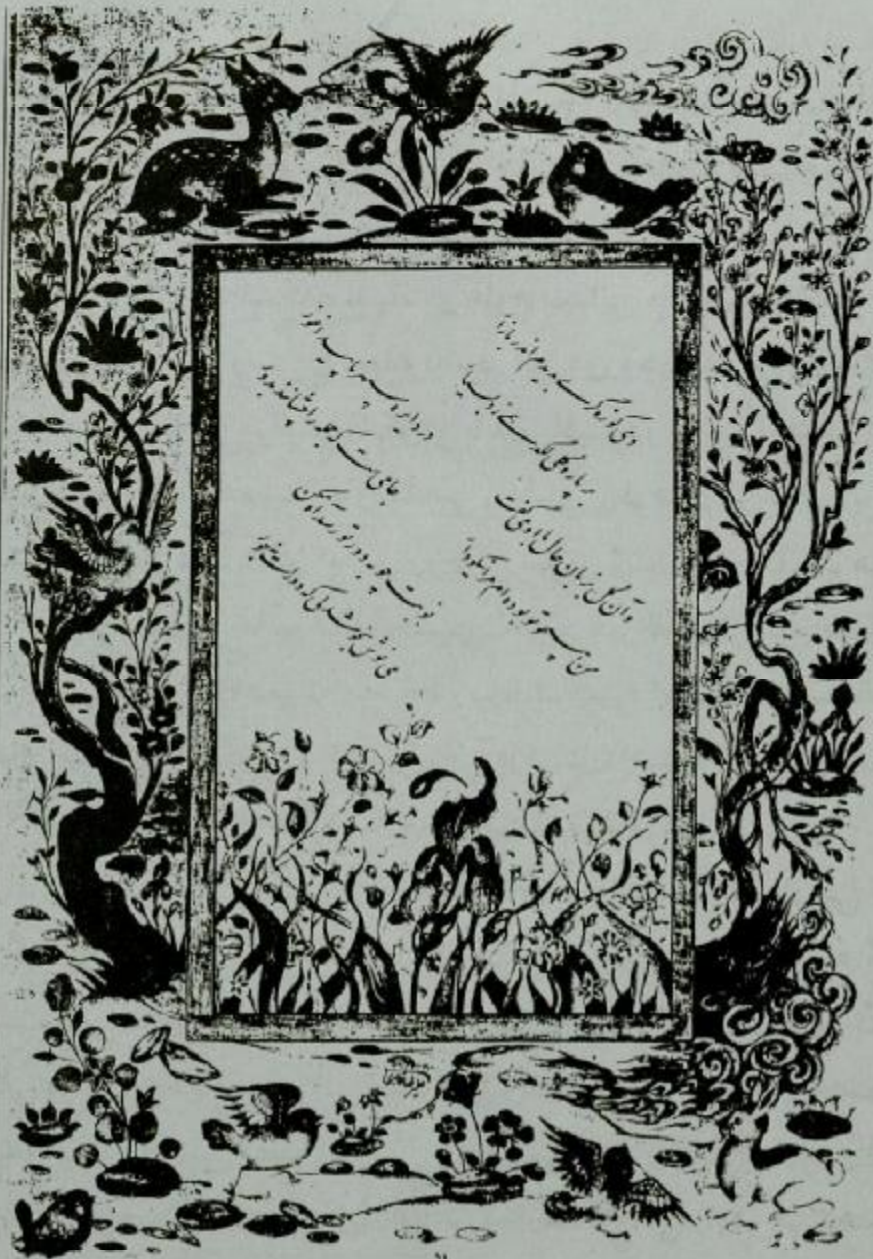 دی کوزه‌گری بدیدم اندر بازار
بر پاره گلی لگد همی زد بسیار
و آن گل بزبان حال با او می‌گفت
من همچو تو بوده‌ام مرا نیکو دار
در دایره سپهر ناپیدا غور
جامی است که جمله را چشانند بدور
نوبت چو بدور تو رسد آه مکن
می نوش بخوشدلی که دور است نه جور